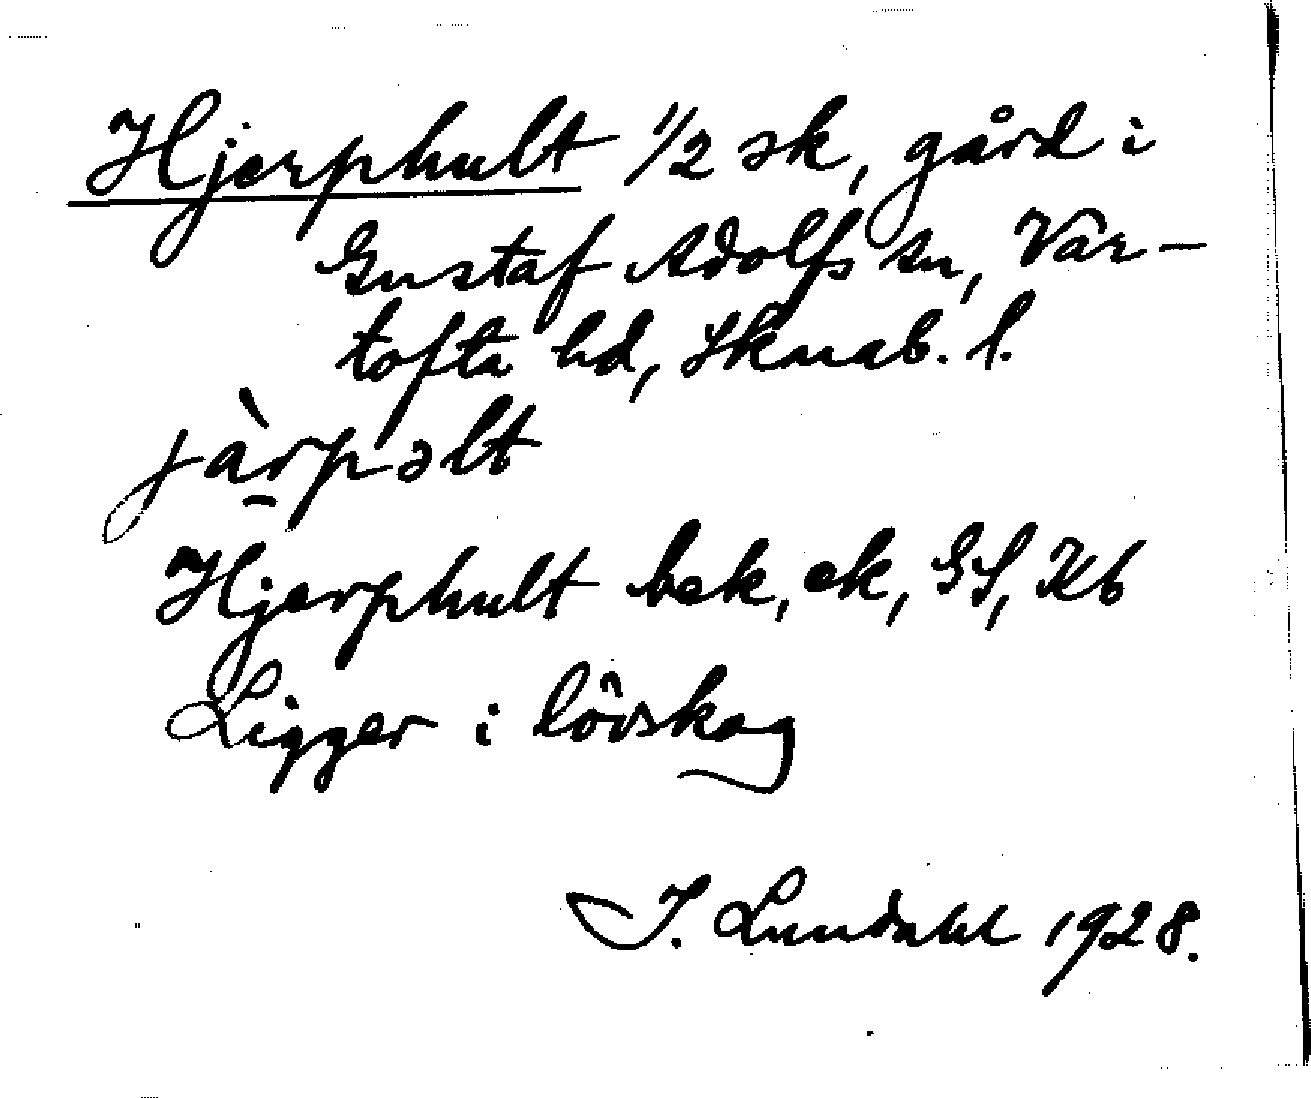 Hjerphult 1/2 sk, gård i
Gustaf Adolfs sn, Var-
tofta hd, Skarab. l.
jàrpəlt
Hjerphult bek, ek, GS, Kb
Ligger i lövskog
I. Lundahl 1928.